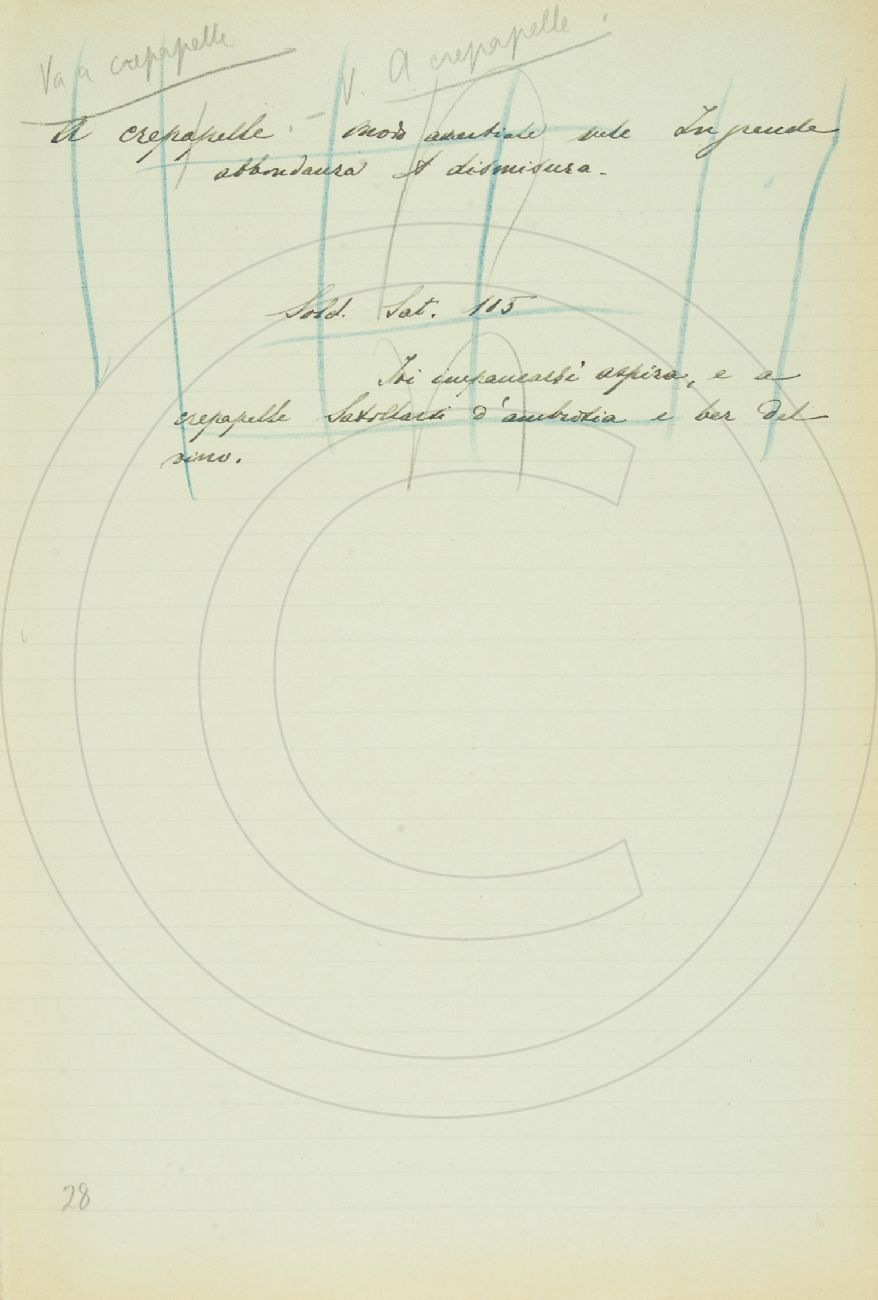 Va a crepapelle
V. A crepapelle.
A crepapelle. – Modo averbiale vale In grande
abbondanza A dismisura.
Sold. Sat. 115
Ivi impancarsi aspira, e a
crepapelle Satollarsi d'ambrosia e ber del
vino.
28